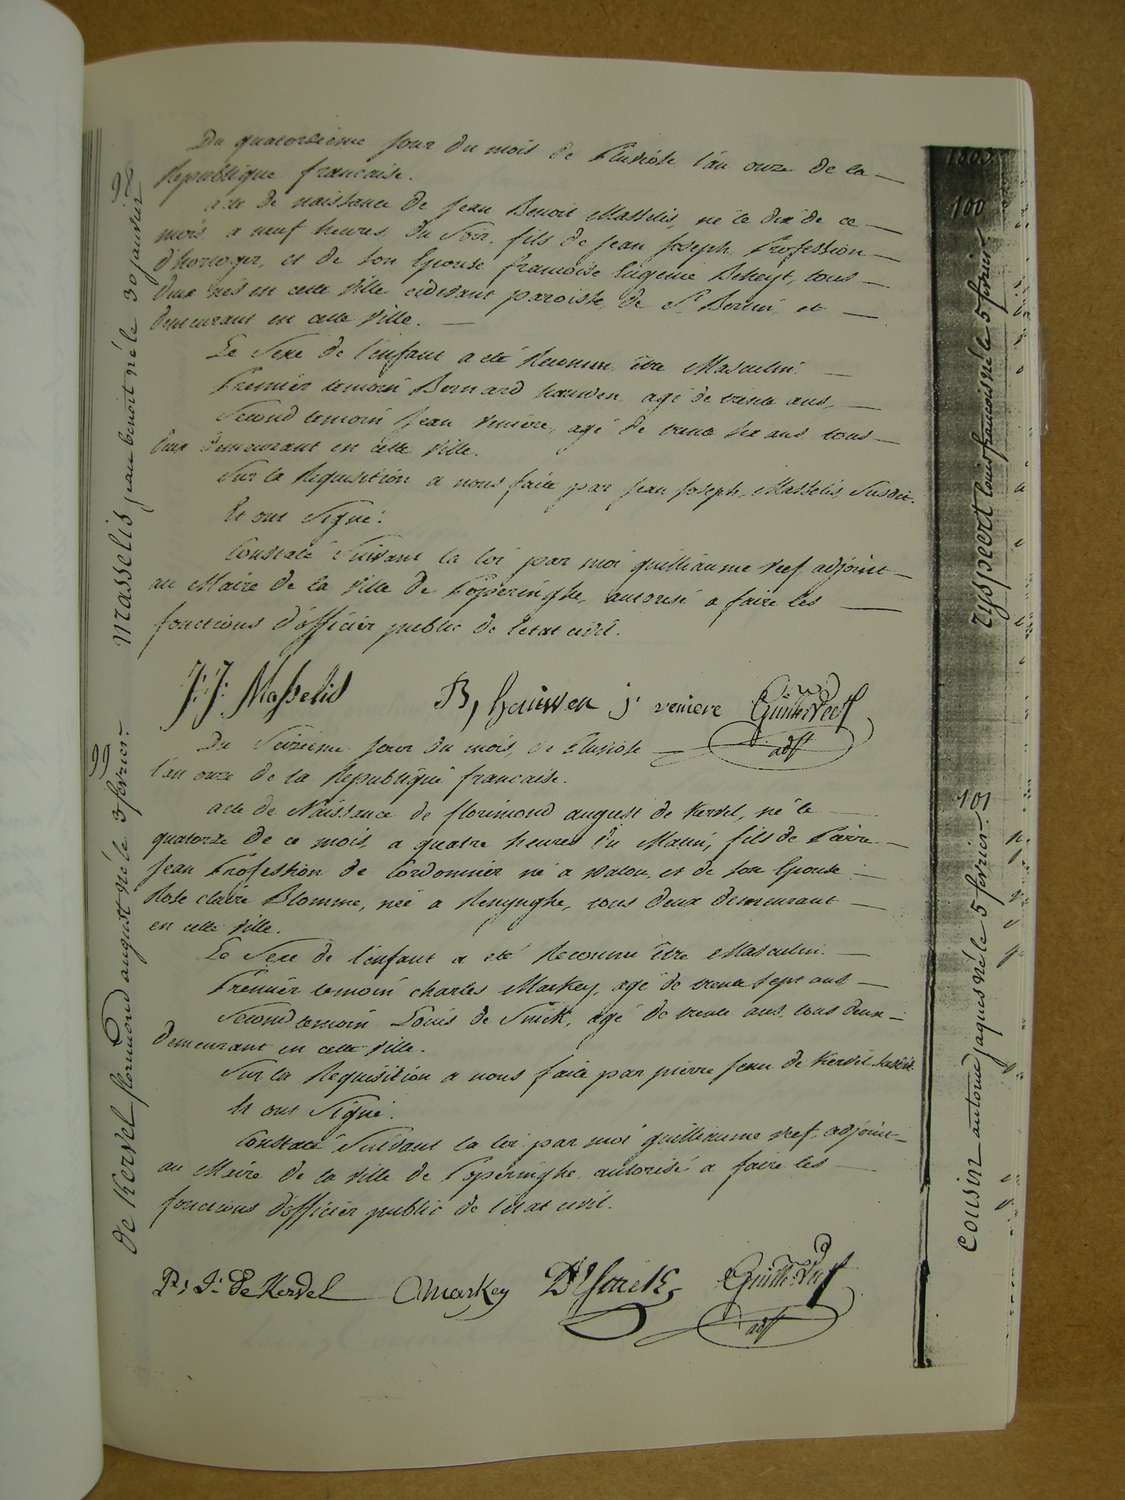 98
Masselis jean benoit né le 30 janvier
Du quatorsieme Jour du mois de Pluviôse l'an onze de la
Republique francaise.
acte de naissance de Jean Benoit Masselis, né le dix de ce
mois a neuf heures du Soir, fils de Jean Joseph Profession
d'horloger, et de son Epouse francoise Eugenie Beheyt, tous
deux nés en cette Ville cidevant paroisse de St. Bertin et
demeurant en cette Ville.
Le Sexe de l'enfant a été Reconnu être Masculin.
Premier temoin Bernard houwen, agé de trente ans,
Second temoin Jean Veniere, agé de trente six ans tous
deux demeurant en cette Ville.
Sur la Requisition a nous faite par Jean Joseph Masselis Susdit.
Et ont Signé.
Constaté Suivant la loi par moi guilliaume Reef adjoint
au Maire de la Ville de Poperinghe, autorisé a faire les
fonctions d'officier public de l'etat civil.
J: J: Masselis B, houwen j: veniere
adjt
99
de Kervel florimond august né le 3 fevrier.
Du Seizieme Jour du mois de Pluviôse
l'an onze de la Republique francaise.
acte de Naissance de florimond august de Kervel, né le
quatorze de ce mois a quatre heures du Matin, fils de Pierre
Jean Profession de Cordonnier né a Watou, et de son Epouse
Rose claire Blomme, née a Renynghe, tous deux demeurant
en cette Ville.
Le Sexe de l'enfant a été Reconnu être Masculin.
Premier temoin charles Markey, agé de trente sept ans
Second temoin Louis de Smick, agé de trente ans, tous deux
demeurant en cette Ville.
Sur la Requisition a nous faite par pierre Jean de Kervel Susdit
Et ont Signé.
Constaté Suivant la loi par moi guilliaume Reef adjoint
au Maire de la Ville de Poperinghe autorisé a faire les
fonctions d'officier public de l'etat civil.
P: J: de Kervel C Markey
adjt
1803
100
ryspeert louis francois né le 5 fevrier
101
cousin antoine jaques né le 5 fevrier.